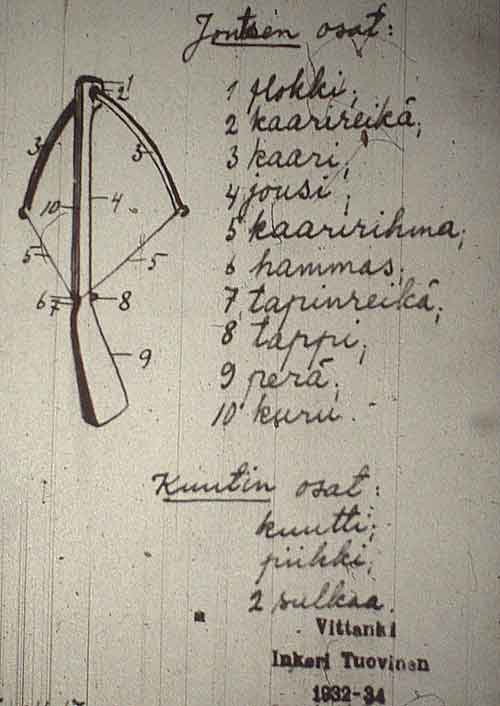 Joutsen osat:
1
2
3
3
10
4
5
5
6
7
8
9
1 plokki;
2 kaarireikä;
3 kaari;
4 jousi;
5 kaaririhma;
6 hammas;
7 tapinreikä;
8 tappi;
9 perä;
10 kuru.
Kuutin osat:
kuutti;
piikki;
2 sulkaa.
Vittanki
Inkeri Tuovinen
1932-34